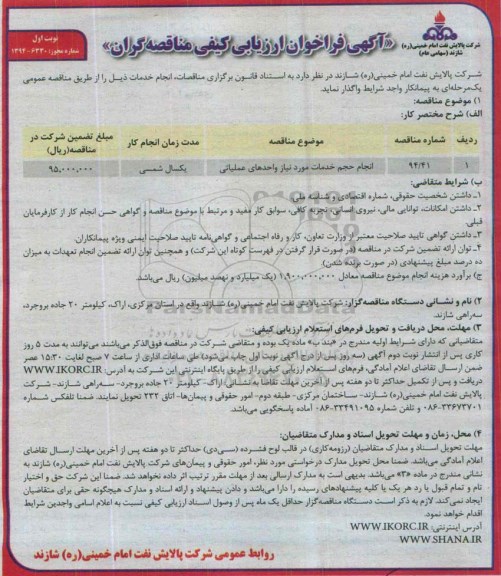 نوبت اول
شماره مجوز: ۱۳۹۴-۶۳۳۰
«آگهی فراخوان ارزیابی کیفی مناقصه گران»
شرکت پالایش نفت امام خمینی(ره)
شازند (سهامی عام)
شرکت پالایش نفت امام خمینی(ره) شازند در نظر دارد به استناد قانون برگزاری مناقصات، انجام خدمات ذیل را از طریق مناقصه عمومی
یک‌مرحله‌ای به پیمانکار واجد شرایط واگذار نماید.
۱) موضوع مناقصه:
الف) شرح مختصر کار:
ردیف شماره مناقصه موضوع مناقصه مدت زمان انجام کار مبلغ تضمین شرکت در مناقصه(ریال)
۱ ۹۴/۴۱ انجام حجم خدمات مورد نیاز واحدهای عملیاتی یکسال شمسی ۹۵،۰۰۰،۰۰۰
ب) شرایط متقاضی:
۱ـ داشتن شخصیت حقوقی، شماره اقتصادی و شناسه ملی
۲ـ داشتن امکانات، توانایی مالی، نیروی انسانی، تجربه کافی، سوابق کار مفید و مرتبط با موضوع مناقصه و گواهی حسن انجام کار از کارفرمایان
قبلی.
۳ـ داشتن گواهی تایید صلاحیت معتبر از وزارت تعاون، کار و رفاه اجتماعی و گواهی‌نامه تایید صلاحیت ایمنی ویژه پیمانکاران.
۴ـ توان ارائه تضمین شرکت در مناقصه (در صورت قرار گرفتن در فهرست کوتاه این شرکت) و همچنین توان ارائه تضمین انجام تعهدات به میزان
ده درصد مبلغ پیشنهادی (در صورت برنده شدن).
ج) برآورد هزینه انجام موضوع مناقصه معادل ۱،۹۰۰،۰۰۰،۰۰۰ (یک میلیارد و نهصد میلیون) ریال می‌باشد.
۲) نام و نشانی دستگاه مناقصه‌گزار: شرکت پالایش نفت امام خمینی(ره) شازند واقع در استان مرکزی، اراک، کیلومتر ۲۰ جاده بروجرد،
سه‌راهی شازند.
۳) مهلت، محل دریافت و تحویل فرم‌های استعلام ارزیابی کیفی:
متقاضیانی که دارای شرایط اولیه مندرج در «بند ب» ماده یک بوده و متقاضی شرکت در مناقصه فوق‌الذکر می‌باشند می‌توانند به مدت ۵ روز
کاری پس از انتشار نوبت دوم آگهی (سه روز پس از درج آگهی نوبت اول چاپ می‌شود) طی ساعات اداری از ساعت ۷ صبح لغایت ۱۵:۳۰ عصر
ضمن ارسال تقاضای اعلام آمادگی، فرم‌های استعلام ارزیابی کیفی را از طریق پایگاه اینترنتی این شرکت به آدرس: WWW.IKORC.IR
دریافت و پس از تکمیل حداکثر تا دو هفته پس از آخرین مهلت تقاضا به نشانی: اراک- کیلومتر ۲۰ جاده بروجرد- سه‌راهی شازند- شرکت
پالایش نفت امام خمینی(ره) شازند- ساختمان مرکزی- طبقه دوم- امور حقوقی و پیمان‌ها- اتاق ۲۳۲ تحویل نمایند. ضمنا تلفکس شماره
۰۸۶-۳۳۶۷۳۷۰۱ و تلفن شماره ۰۸۶-۳۳۴۹۱۰۹۵ آماده پاسخگویی می‌باشد.
۴) محل، زمان و مهلت تحویل اسناد و مدارک متقاضیان:
مهلت تحویل اسناد و مدارک متقاضیان (رزومه‌کاری) در قالب لوح فشرده (سی‌دی) حداکثر تا دو هفته پس از آخرین مهلت ارسال تقاضای
اعلام آمادگی می‌باشد. ضمنا محل تحویل مدارک درخواستی مورد نظر، امور حقوقی و پیمان‌های شرکت پالایش نفت امام خمینی(ره) شازند به
نشانی مندرج در ماده «۳» می‌باشد. بدیهی است به مدارک ارسالی بعد از مهلت مقرر ترتیب اثر داده نخواهد شد. ضمنا این شرکت حق و اختیار
تام و تمام قبول یا رد هر یک یا کلیه پیشنهادهای رسیده را دارا می‌باشد و دادن پیشنهاد و ارائه اسناد و مدارک هیچگونه حقی برای متقاضیان
ایجاد نمی‌کند. لازم به ذکر است دستگاه مناقصه‌گزار حداقل یک ماه پس از وصول اسناد ارزیابی کیفی نسبت به اعلام اسامی واجدین شرایط
اقدام خواهد نمود.
آدرس اینترنتی: WWW.IKORC.IR
WWW.SHANA.IR
روابط عمومی شرکت پالایش نفت امام خمینی(ره) شازند